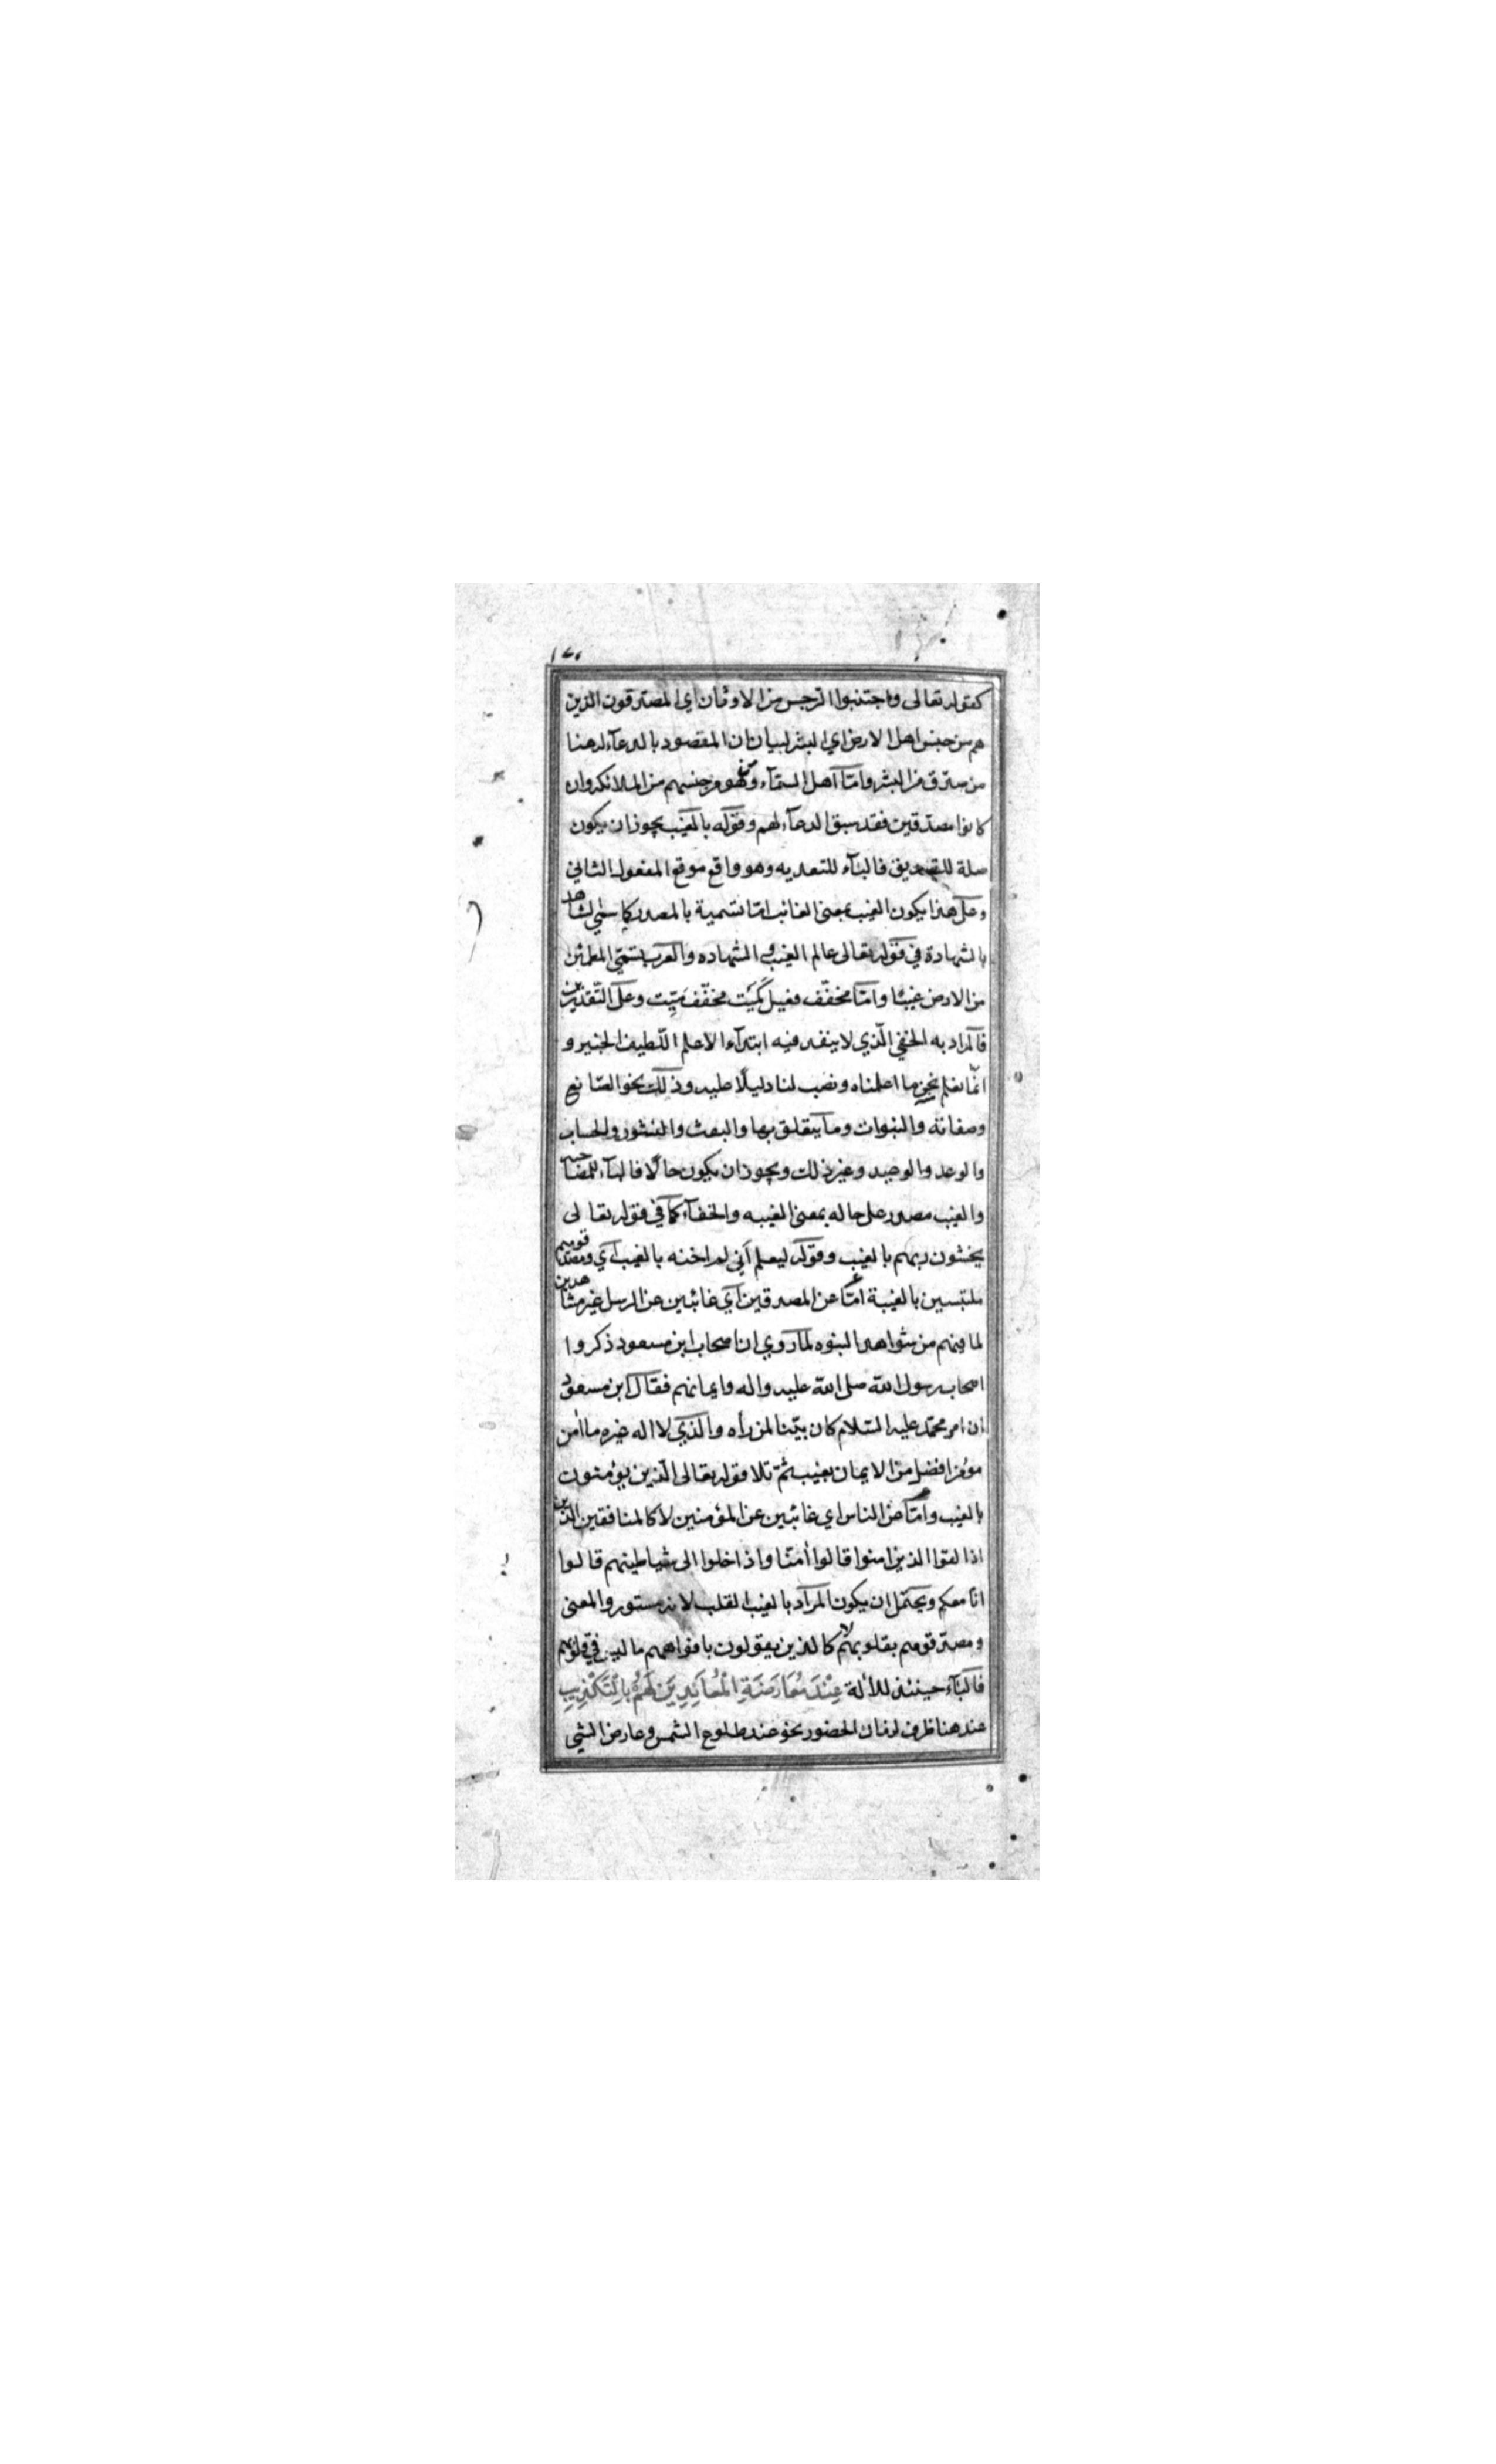 ١٧٠
كقوله تعالى واجتنبوا الرجس من الاوثان اي المصدقون الذين
هم من جنس اهل الارض اي البشر لبيان ان المقصود بالدعآء له هنا
من صدق من البشر وامّا اهل السمآء ومن هو من جنسهم من الملائكه وان
كانوا مصدقين فقد سبق الدعآء لهم وقوله بالغيب يجوز ان يكون
صلة للتصديق فالبآء للتعديه وهو واقع موقع المفعول الثاني
وعلى هذا يكون الغيب بمعنى الغائب امّا تسمية بالمصدر كما سمّي الشاهد
بالشهادة في قوله تعالى عالم الغيب والشهاده والعرب تسمّي المطمئن
من الارض غيبًا وامّا مخفّف فعيل كميت مخفّف ميّت وعلى التّقديرين
فالمراد به الخفي الّذي لا ينفد فيه ابتدآء الا علم اللّطيف الخبير و
انّما نعلم نحن ما اعلمناه ونصب لنا دليلًا عليه وذلك نحو الصّانع
وصفاته والنبوات وما يتعلق بها والبعث والنشور والحساب
والوعد والوعيد وغير ذلك ويجوز ان يكون حالًا فالبآء للمصاحبه
والغيب مصدر على حاله بمعنى الغيبه والخفآء كما في قوله تعالى
يخشون ربهم بالغيب وقوله ليعلم أني لم اخنه بالغيب اي ومصدقوهم
ملتبسين بالغيبة امّا عن المصدقين اي غائبين عن الرسل غير مشاهدين
لما فيهم من شواهد النبوه لما روي ان اصحاب ابن مسعود ذكروا
اصحاب رسول الله صلى الله عليه واله وايمانهم فقال ابن مسعود
ان امر محمّد عليه السّلام كان بيّنا لمن رأه والذي لا اله غيره ما أمن
مؤمن افضل من الايمان بغيب ثمّ تلا قوله تعالى الّذين يؤمنون
بالغيب وامّا عن الناس اي غائبين عن المؤمنين لا كالمنافقين الذين
اذا لقوا الذين امنوا قالوا أمنّا واذا خلوا الى شياطينهم قالوا
انّا معكم ويحتمل ان يكون المراد بالغيب القلب لانه مستور والمعنى
ومصدقوهم بقلوبهم لا كالذين يقولون بافواههم ما ليس في قلوبهم
فالبآء حينئذ للألة عِنْدَ مُعَارَضَةِ الْمُعَانِدِيْنَ لَهُمْ بِالتَّكْذِيبِ
عند هنا ظرف لزمان الحضور نحو عند طلوع الشمس وعارض الشي